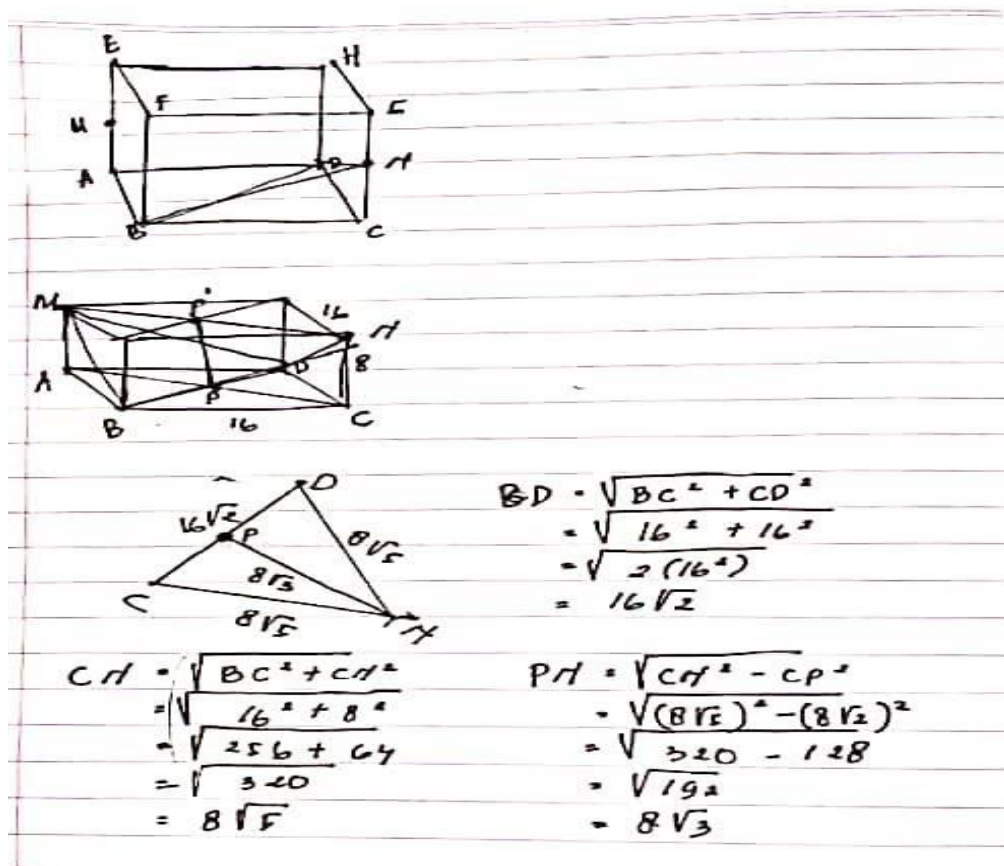 E
H
F
E
M
A
D
N
B
C
M
P'
16
N
A
D
8
P
B
16
C
D
16√2
P
8√5
8√3
C
8√5
N
BD = √BC² + CD²
= √16² + 16²
= √2(16²)
= 16√2
CN = √BC² + CN²
= √16² + 8²
= √256 + 64
= √320
= 8√5
PN = √CN² - CP²
= √(8√5)² - (8√2)²
= √320 - 128
= √192
= 8√3